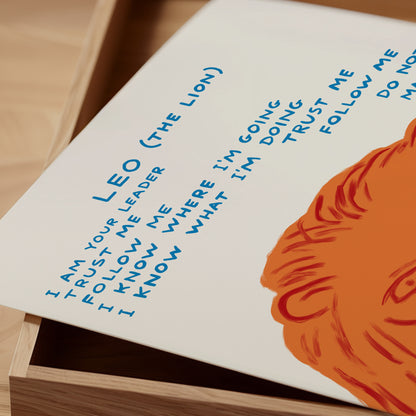 LEO (THE LION)
I AM YOUR LEADER
TRUST ME
FOLLOW ME
I KNOW WHERE I'M GOING
I KNOW WHAT I'M DOING
TRUST ME
FOLLOW ME
DO NOT